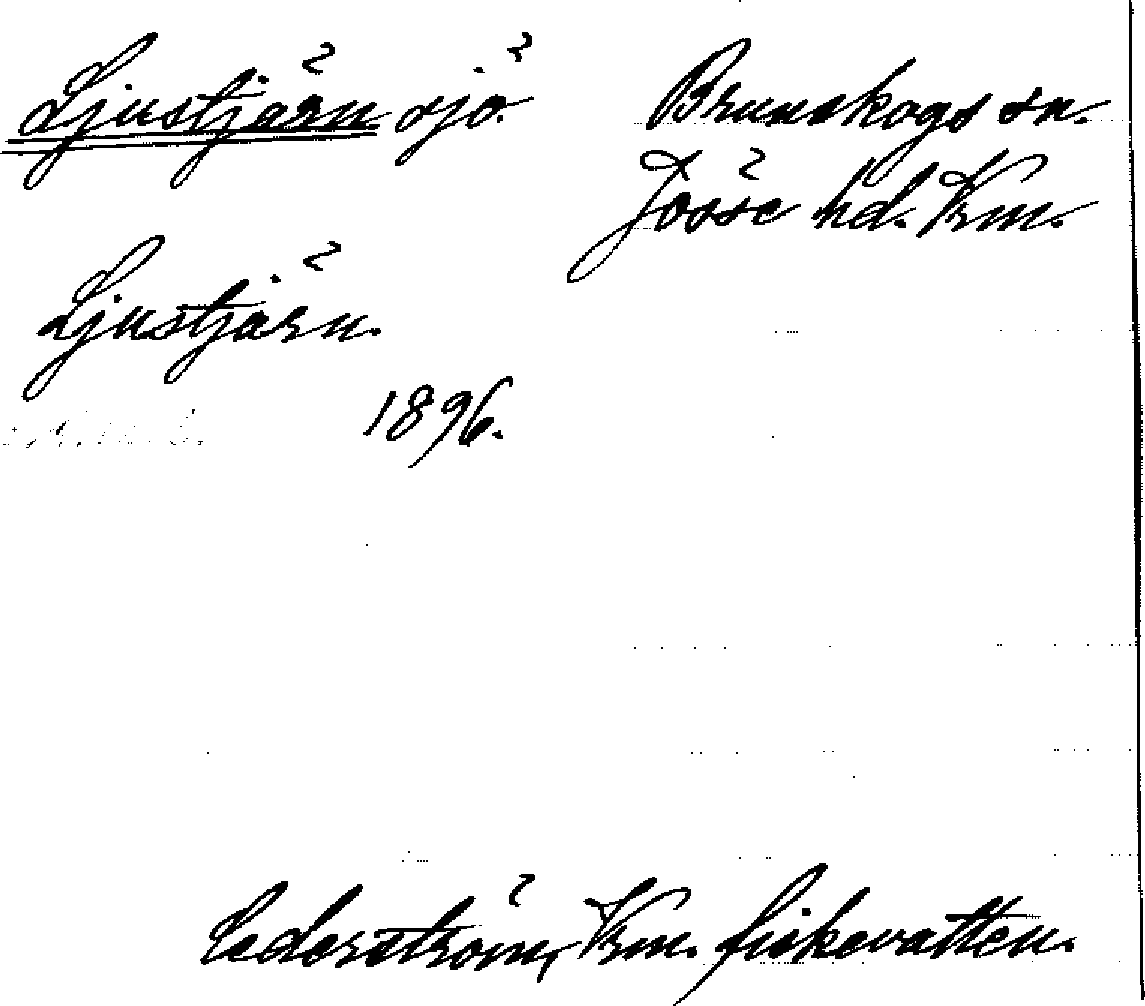 Ljustjärn sjö.
Brunskogs sn.
Jösse hd. Vrm.
Ljustjärn.
1896.
Cederström, Vrm. fiskevatten.